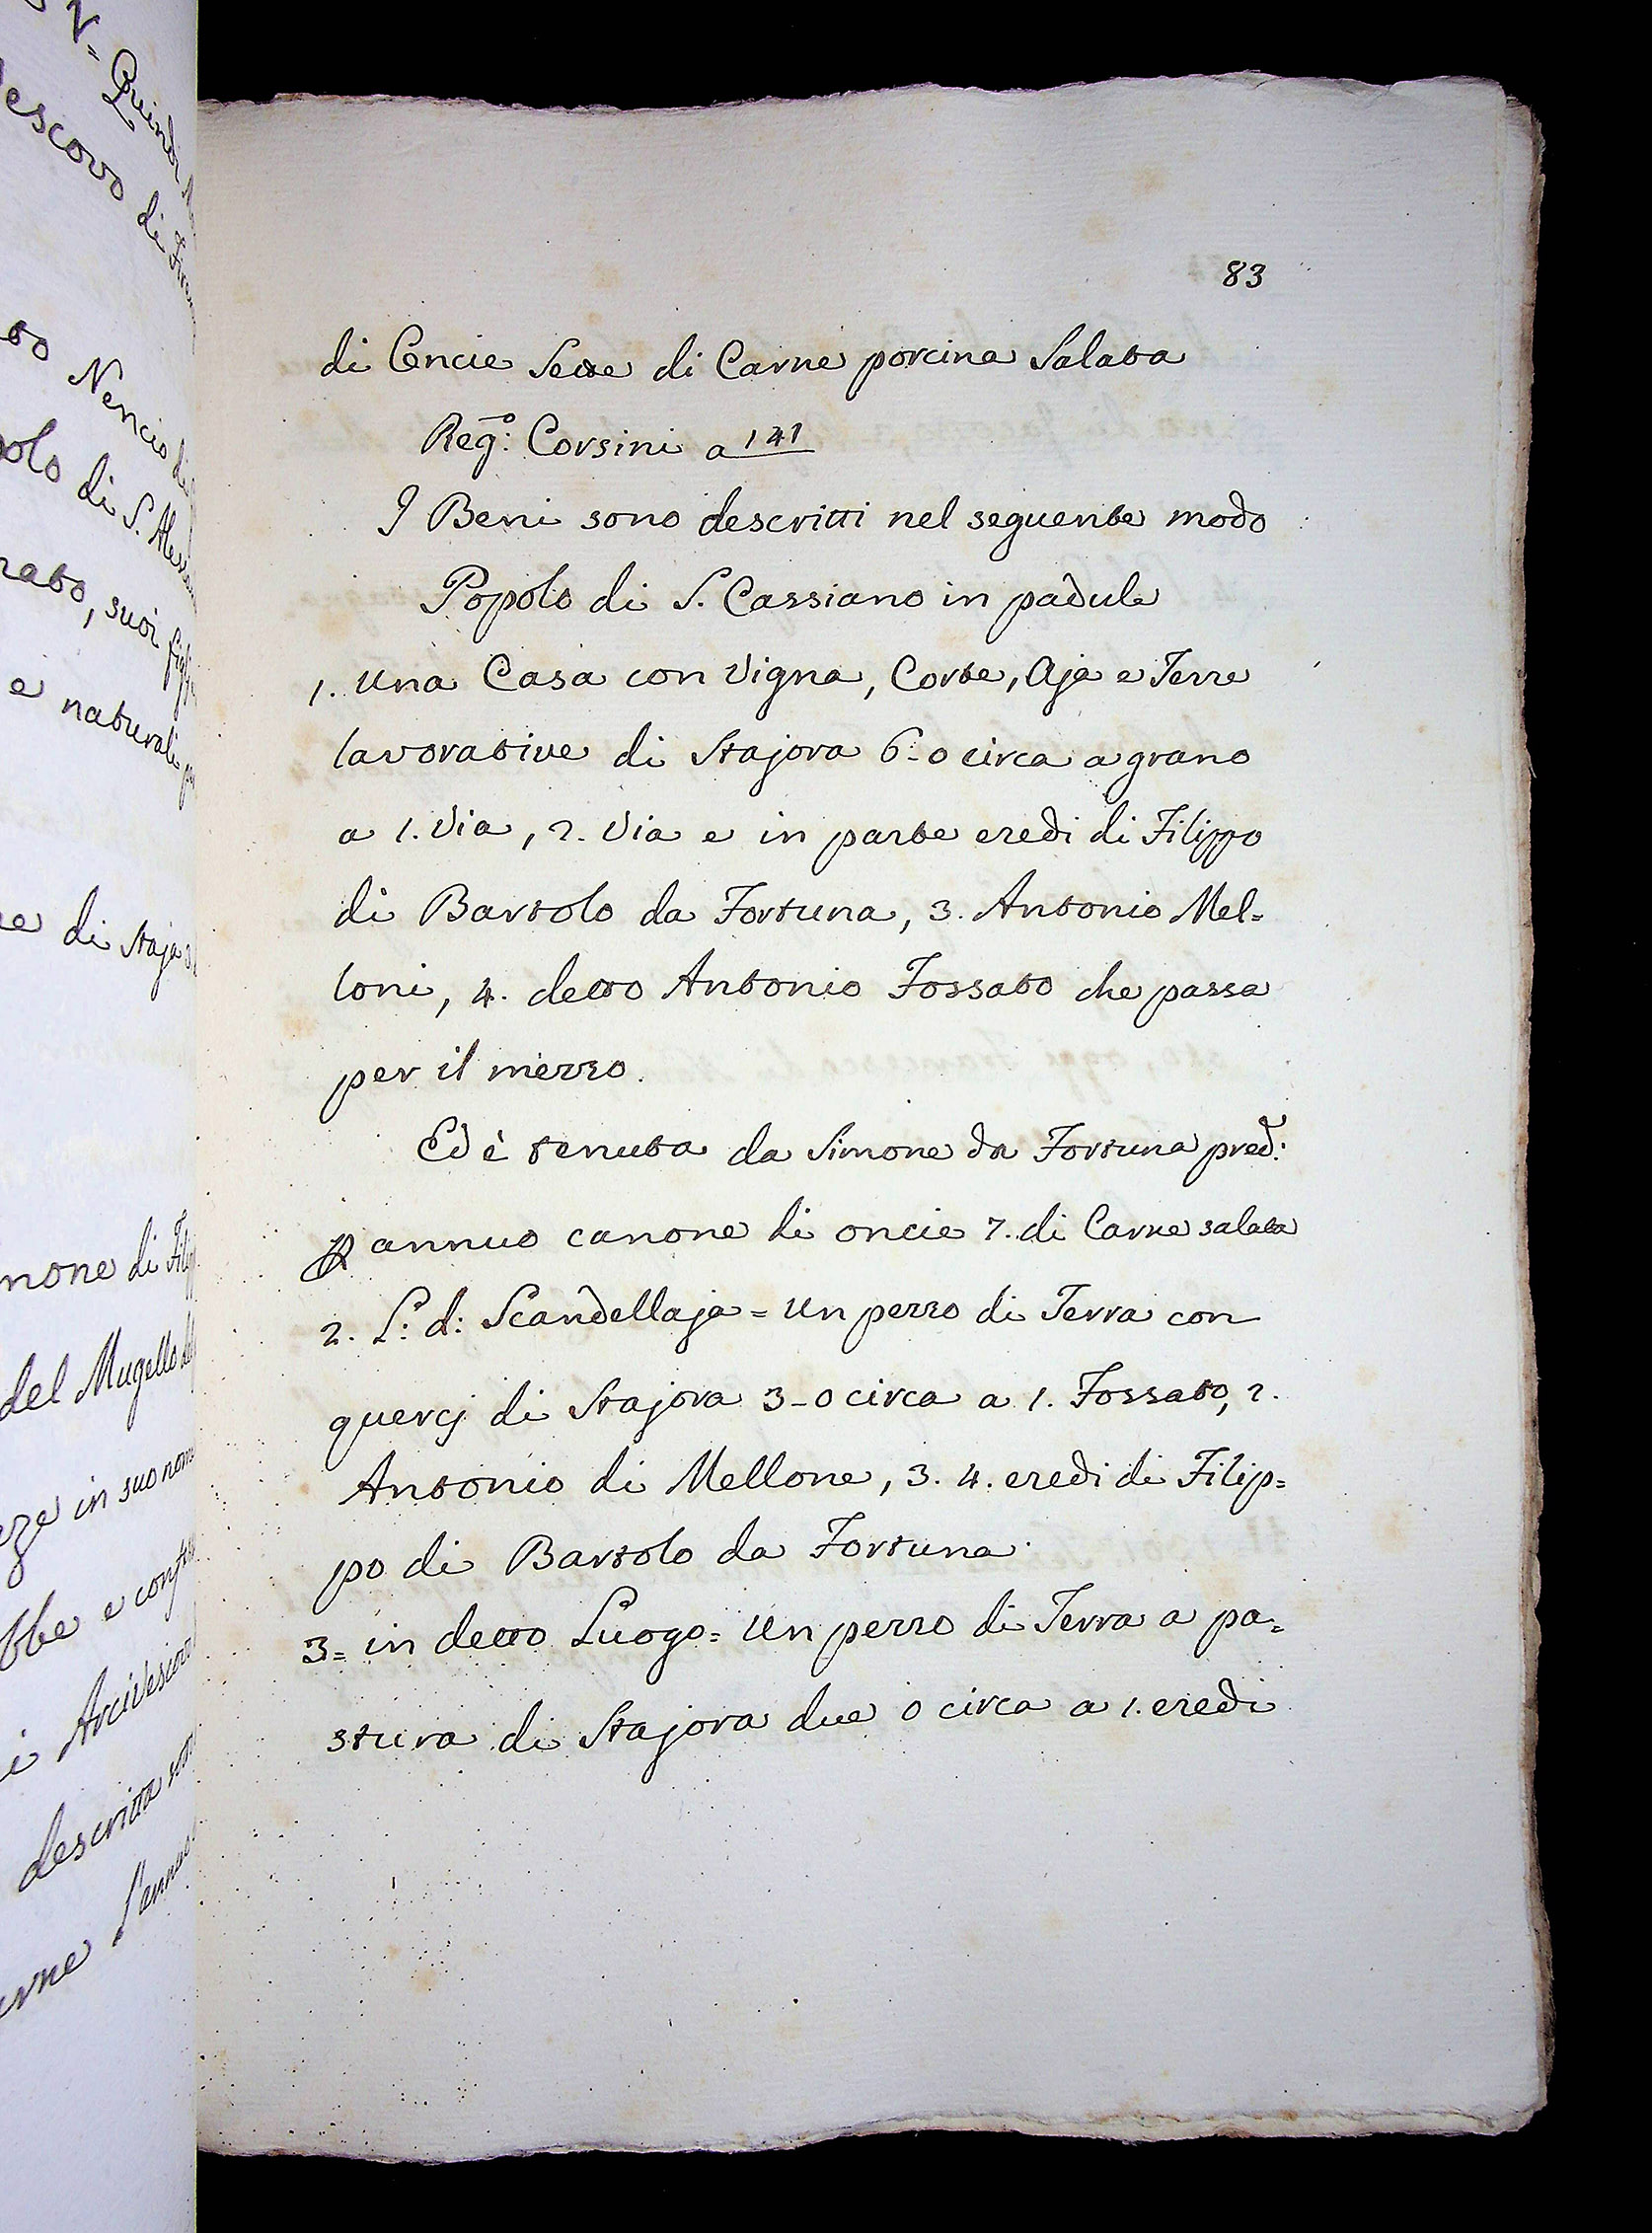 83
di Oncie Sette di Carne porcina Salata
Reg.º: Corsini a 141
I Beni sono descritti nel seguente modo
Popolo di S. Cassiano in padule
1. Una Casa con Vigna, Corte, Aja e Terre
lavorative di Stajora 6-0 circa a grano
a 1. Via, 2. Via e in parte eredi di Filippo
di Bartolo da Fortuna, 3. Antonio Mel-
loni, 4. detto Antonio Fossato che passa
per il mezzo.
Ed è tenuta da Simone da Fortuna pred:
p annuo canone di oncie 7. di Carne salata
2. L: d: Scandellaja = Un pezzo di Terra con
quercj di Stajora 3-0 circa a 1. Fossato, 2.
Antonio di Mellone, 3. 4. eredi di Filip=
po di Bartolo da Fortuna.
3= in detto Luogo= Un pezzo di Terra a pa=
stura di Stajora due 0 circa a 1. eredi
escovo di
to Nencio di
polo di S.
nato, suoi figli
e naturali
e di Staja
mone di
del Mugello
in suo nom
bbe e
i Arcivescov
descritta
rne l'annuo